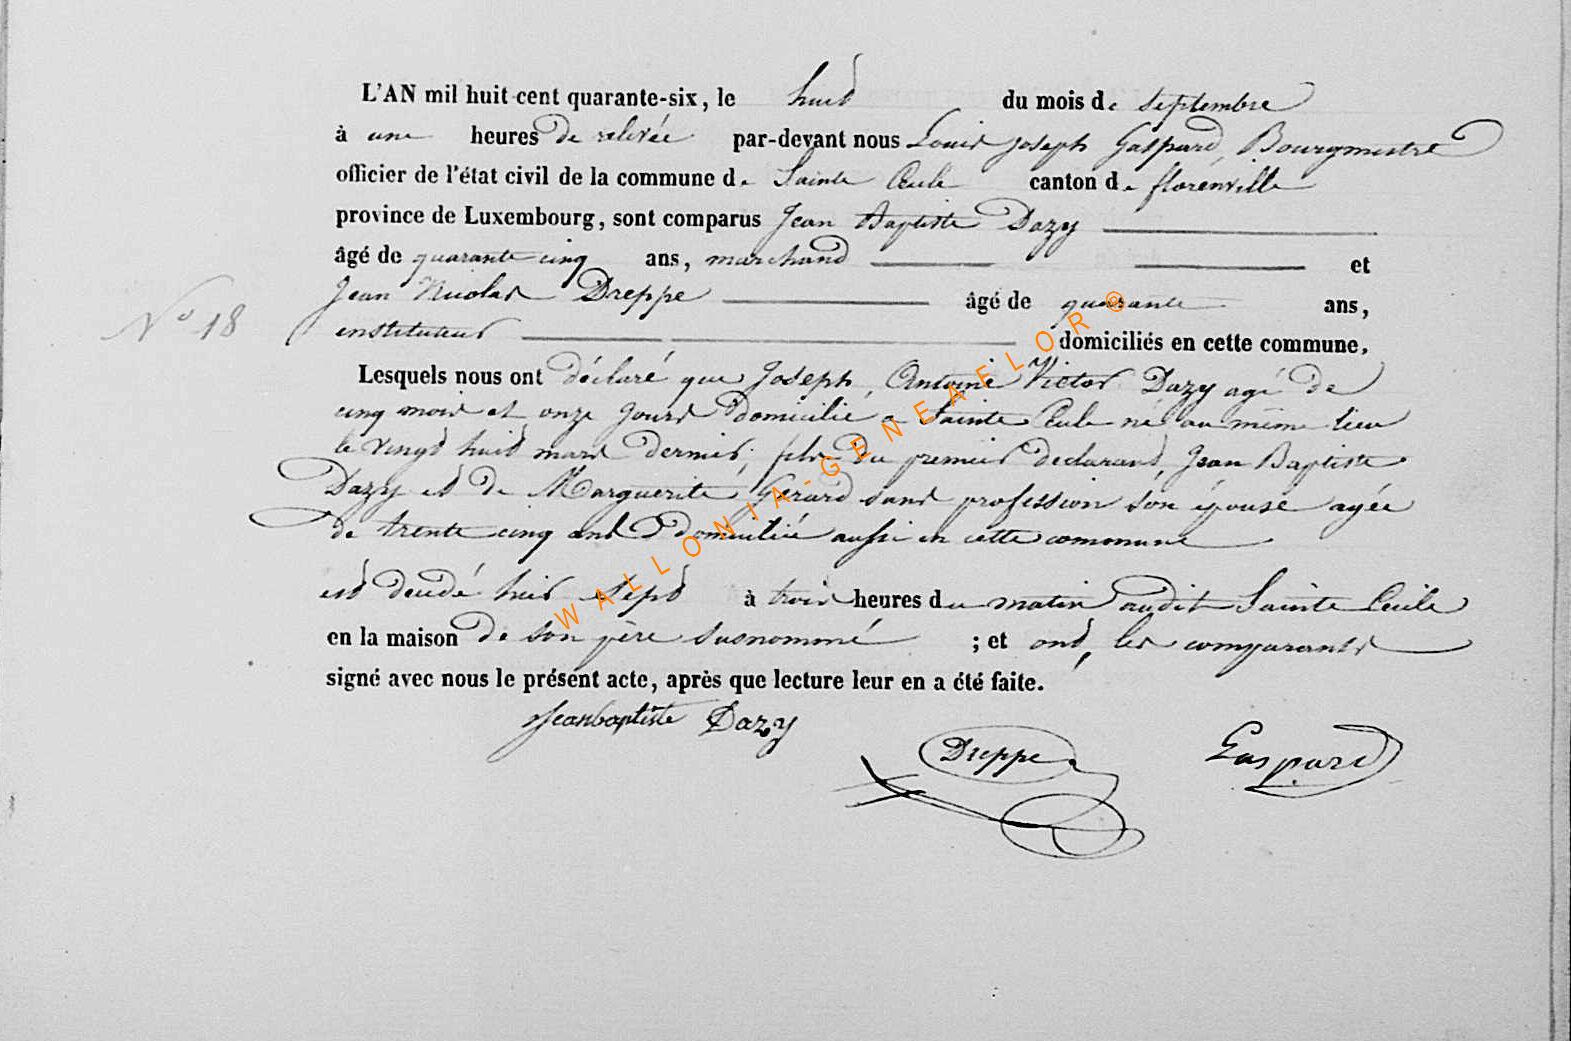 L'AN mil huit cent quarante-six, le huit du mois de Septembre
à une heures de relevée par-devant nous Louis Joseph Gaspard, Bourgmestre
officier de l'état civil de la commune de Sainte Cecile canton de florenville
province de Luxembourg, sont comparus Jean Baptiste Dazy
âgé de quarante cinq ans, marchand et
Jean Nicolas Dreppe âgé de quarante ans,
N° 18
instituteur domiciliés en cette commune.
Lesquels nous ont déclaré que Joseph, Antoine Victor Dazy agé de
cinq mois et onze jours domicilié a Sainte Cecile né au même lieu
le vingt huit mars dernier, fils du premier declarant, Jean Baptiste
Dazy et de Marguerite Gerard sans profession son épouse agée
de trente cinq ans domiciliée aussi en cette commune
est decedé huit Sept à trois heures du matin audit Sainte Cecile
en la maison de son père susnommé ; et ont, les comparants
signé avec nous le présent acte, après que lecture leur en a été faite.
Jeanbaptiste Dazy
Dreppe
Gaspard
WALLONIA-GENEAFLOR ®